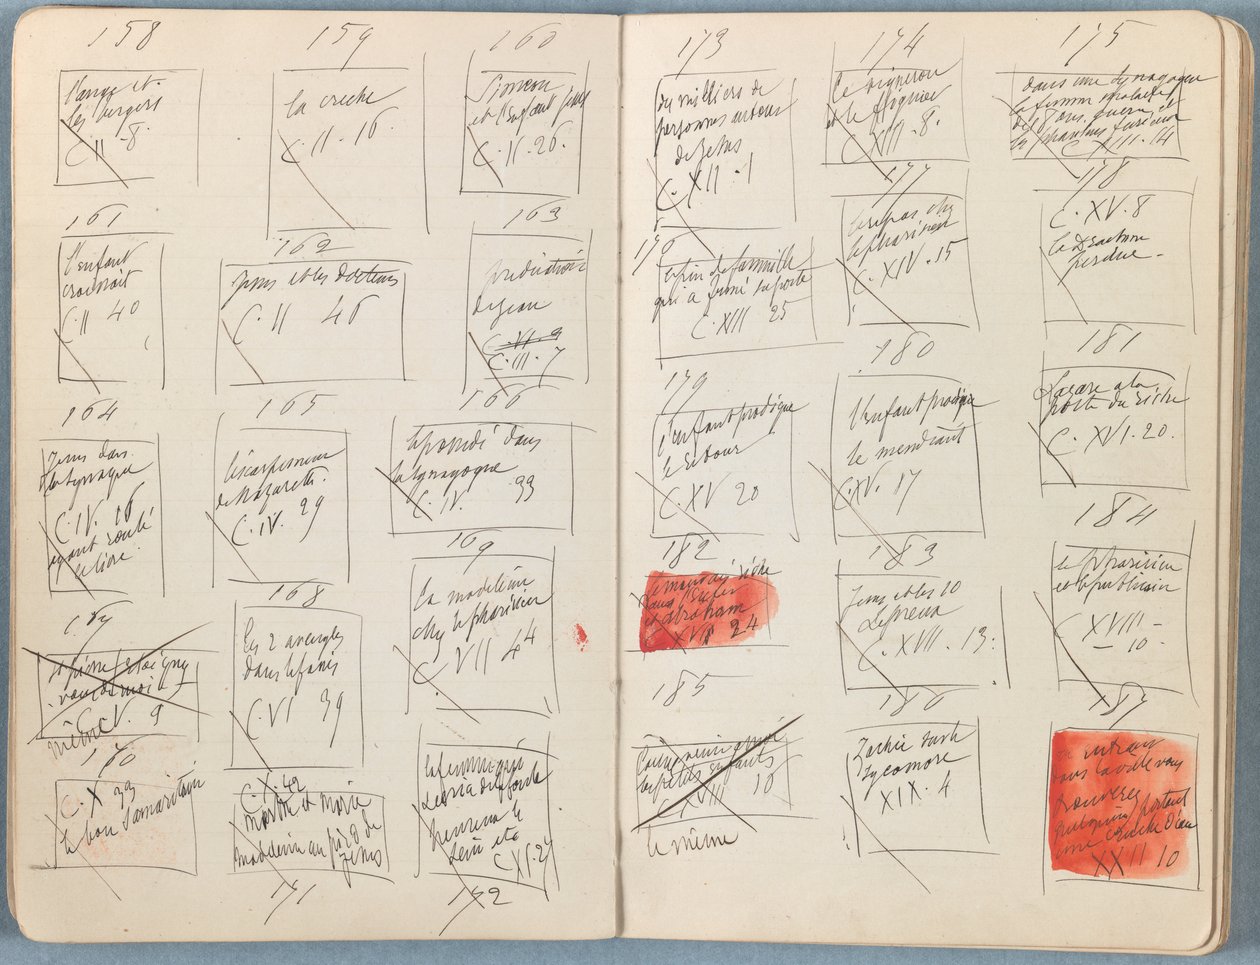 158
l'ange et
les bergers
C II . 8.
159
la creche
C. II . 16.
160
Simeon
et l'Enfant Jesus
C. II . 26.
161
l'enfant
croissait
C. II 40
162
Jesus et les docteurs
C. II 46
163
predication
de Jean
C. VI. 9
C. III . 7
164
Jesus dans
la synagogue
C. IV. 16
ayant roulé
le livre.
165
l'escarpement
de Nazareth.
C. IV. 29
166
le possédé dans
la synagogue
C. IV. 33
167
St pierre
moi
C V. 9
même
168
les 2 aveugles
dans le
C. VI 39
169
la madeleine
chez le pharisien
C. VII 44
170
C. X 33
le bon Samaritain
C. X. 42
Marthe et Marie
madeleine au pied de
Jesus
171
la femme qui
heureux le
sein etc
C XI. 27
172
173
des milliers de
personnes autour
de Jesus
C. XII . 1
174
le vigneron
et le figuier
C XIII . 8.
175
dans une synagogue
la femme malade
C XIII . 14
176
le père de famille
qui a fermé sa porte
C. XIII 25
177
le repas chez
le pharisien
C. XIV. 15
178
C. XV. 8
la Drachme
perdue.
179
l'enfant prodigue
le retour
C XV 20
180
l'Enfant prodigue
le mendiant
C. XV. 17
181
Lazare a la
porte du riche
C. XVI. 20.
182
le mauvais riche
dans l'Enfer
et Abraham
XVI 24
183
Jesus et les 10
Lepreux
C. XVII . 13.
184
le pharisien
et le publicain
C XVIII –
– 10 –
185
les petits enfants
C XVIII 10
le même
186
Zachée dans le
Sycomore
XIX. 4
187
en entrant
dans la ville vous
trouverez
quelqu'un portant
une cruche d'eau
XXII 10